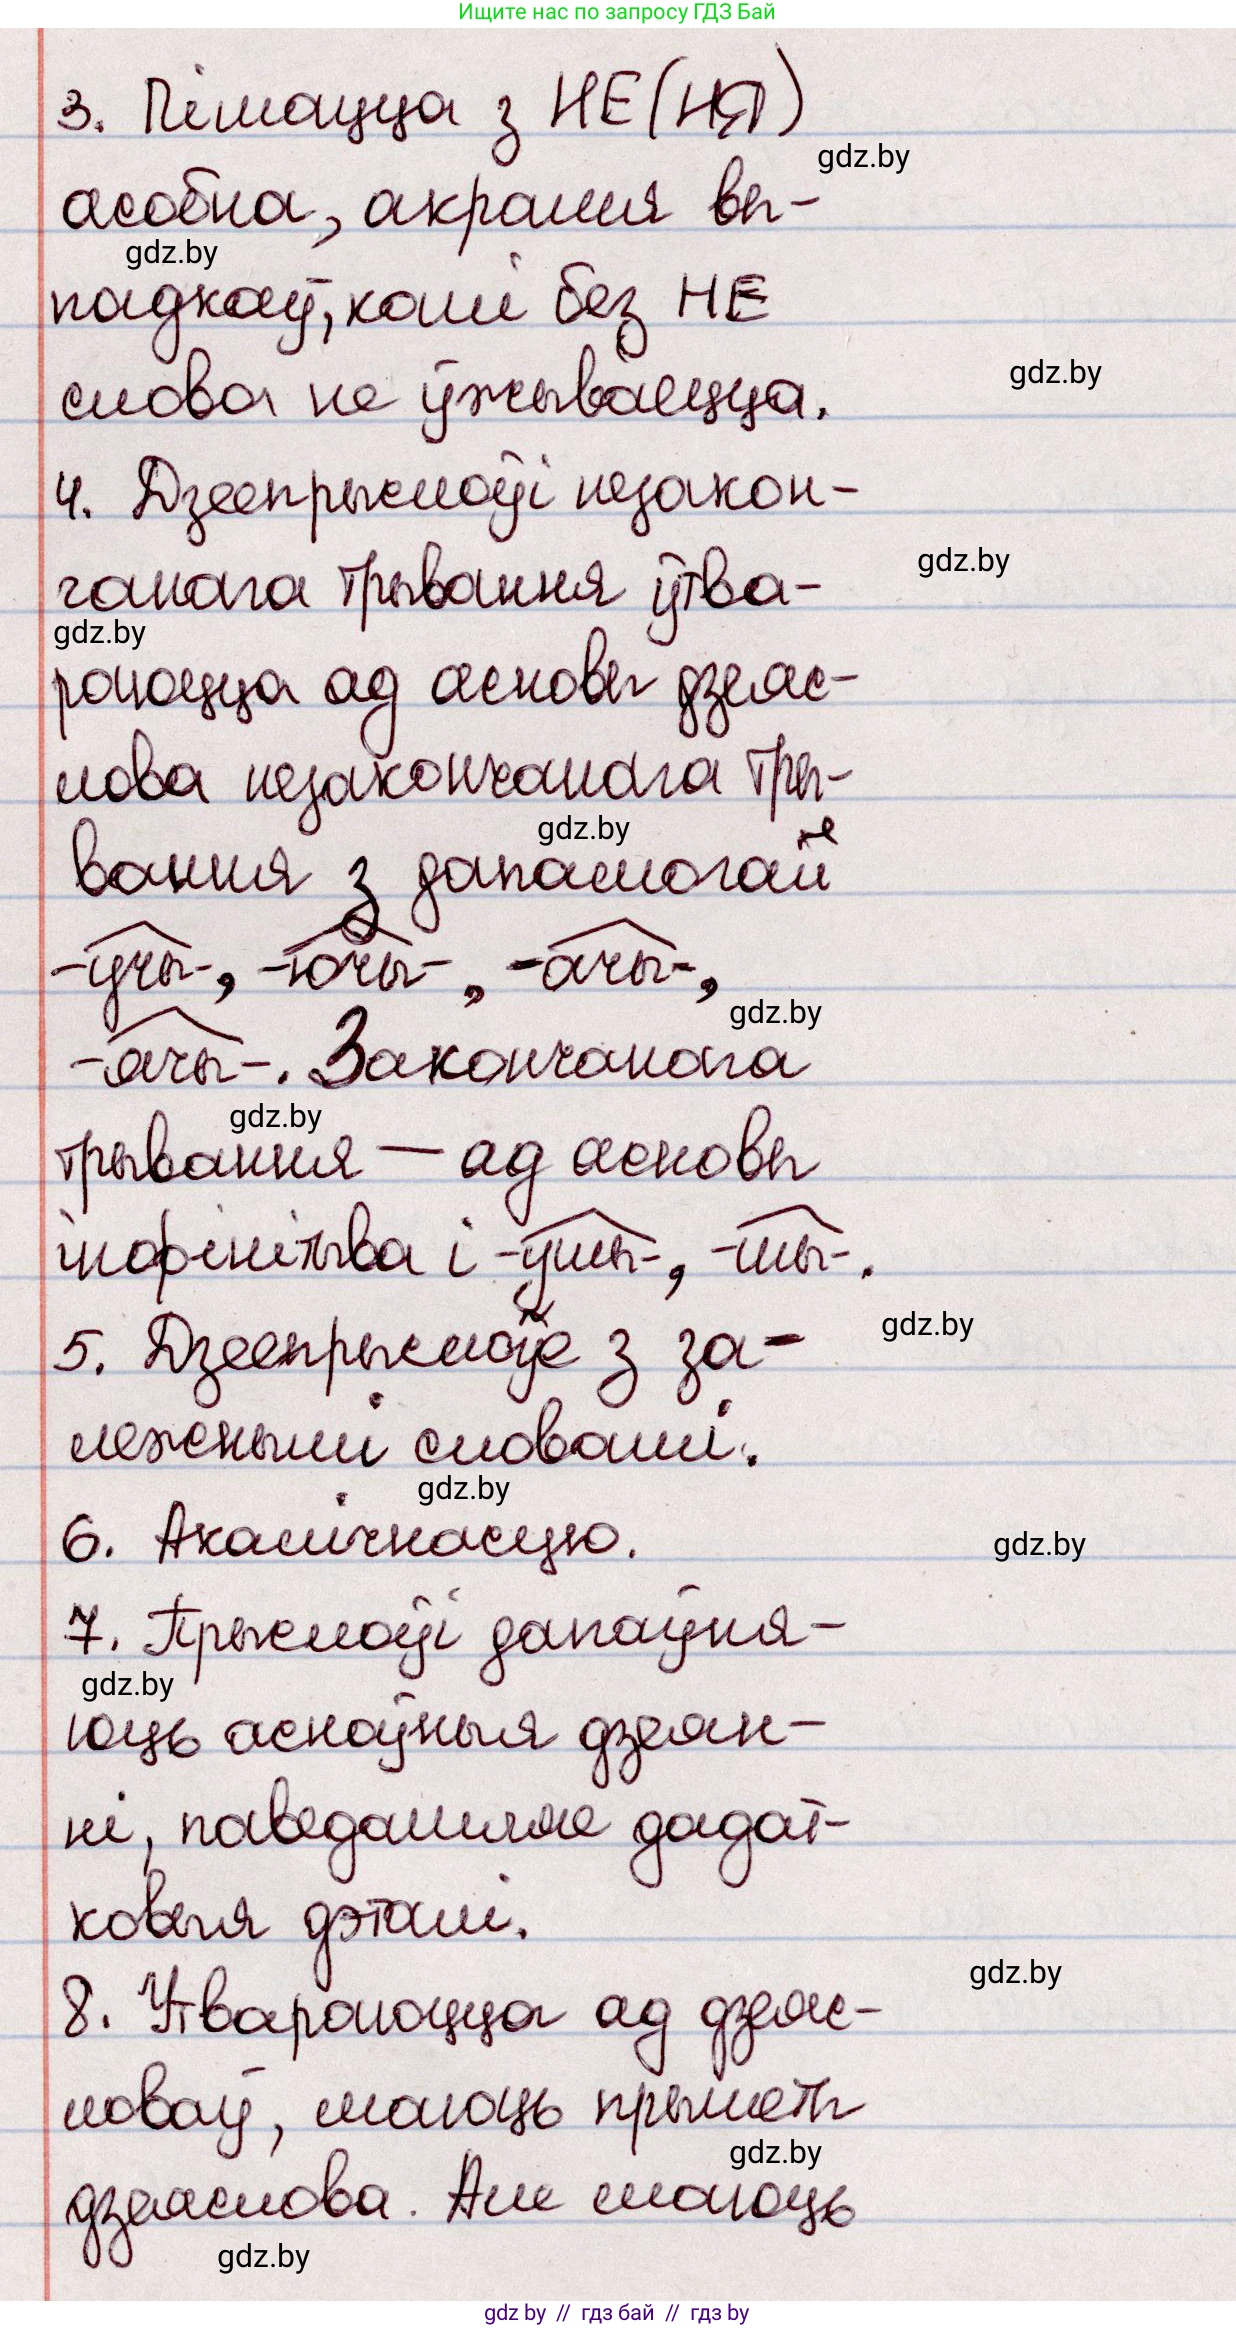 Ищите нас по запросу ГДЗ Бай
3. Пішацца з НЕ(НЯ)
gdz.by
асобна, акрамя вы-
gdz.by
падкаў, калі без НЕ
gdz.by
слова не ўжываецца.
4. Дзеепрыслоўі незакон-
gdz.by
чанага трывання ўтва-
gdz.by
раюцца ад асновы дзеяс-
лова незакончанага тры-
gdz.by
вання з дапамогай
-учы-, -ючы-, -ачы-,
gdz.by
-ячы-. Закончанага
gdz.by
трывання — ад асновы
інфінітыва і -ўшы-, -шы-.
gdz.by
5. Дзеепрыслоўе з за-
лежнымі словамі.
gdz.by
6. Акалічнасцю.
gdz.by
7. Прыслоўі дапаўня-
gdz.by
юць асноўныя дзеян-
ні, паведамляе дадат-
ковыя дэталі.
gdz.by
8. Утвараюцца ад дзеяс-
ловаў, маюць прыметы
gdz.by
дзеяслова. Але маюць
gdz.by
gdz by // гдз бай // гдз by